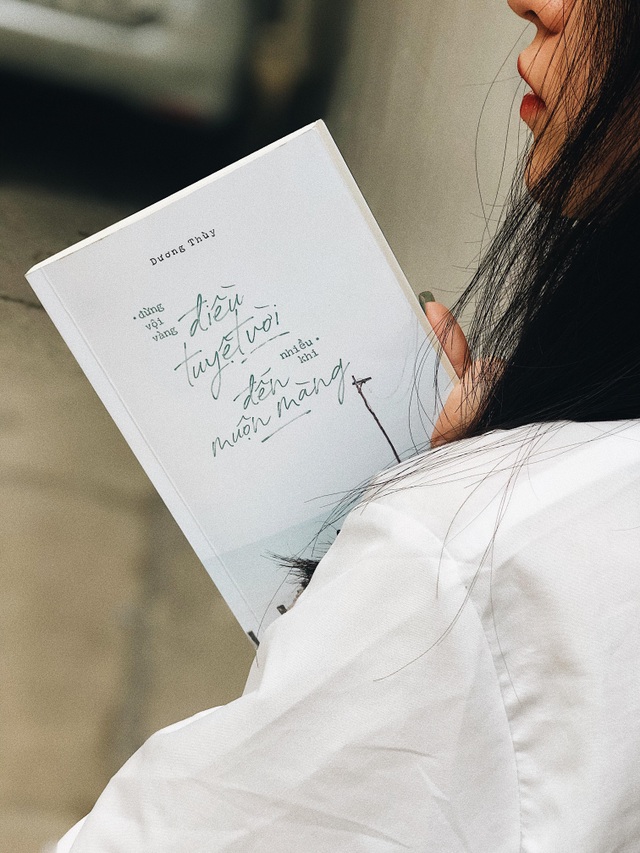 Dương Thùy
·đừng
vội
vàng
điều
tuyệt vời
nhiều·
khi
đến
muộn màng